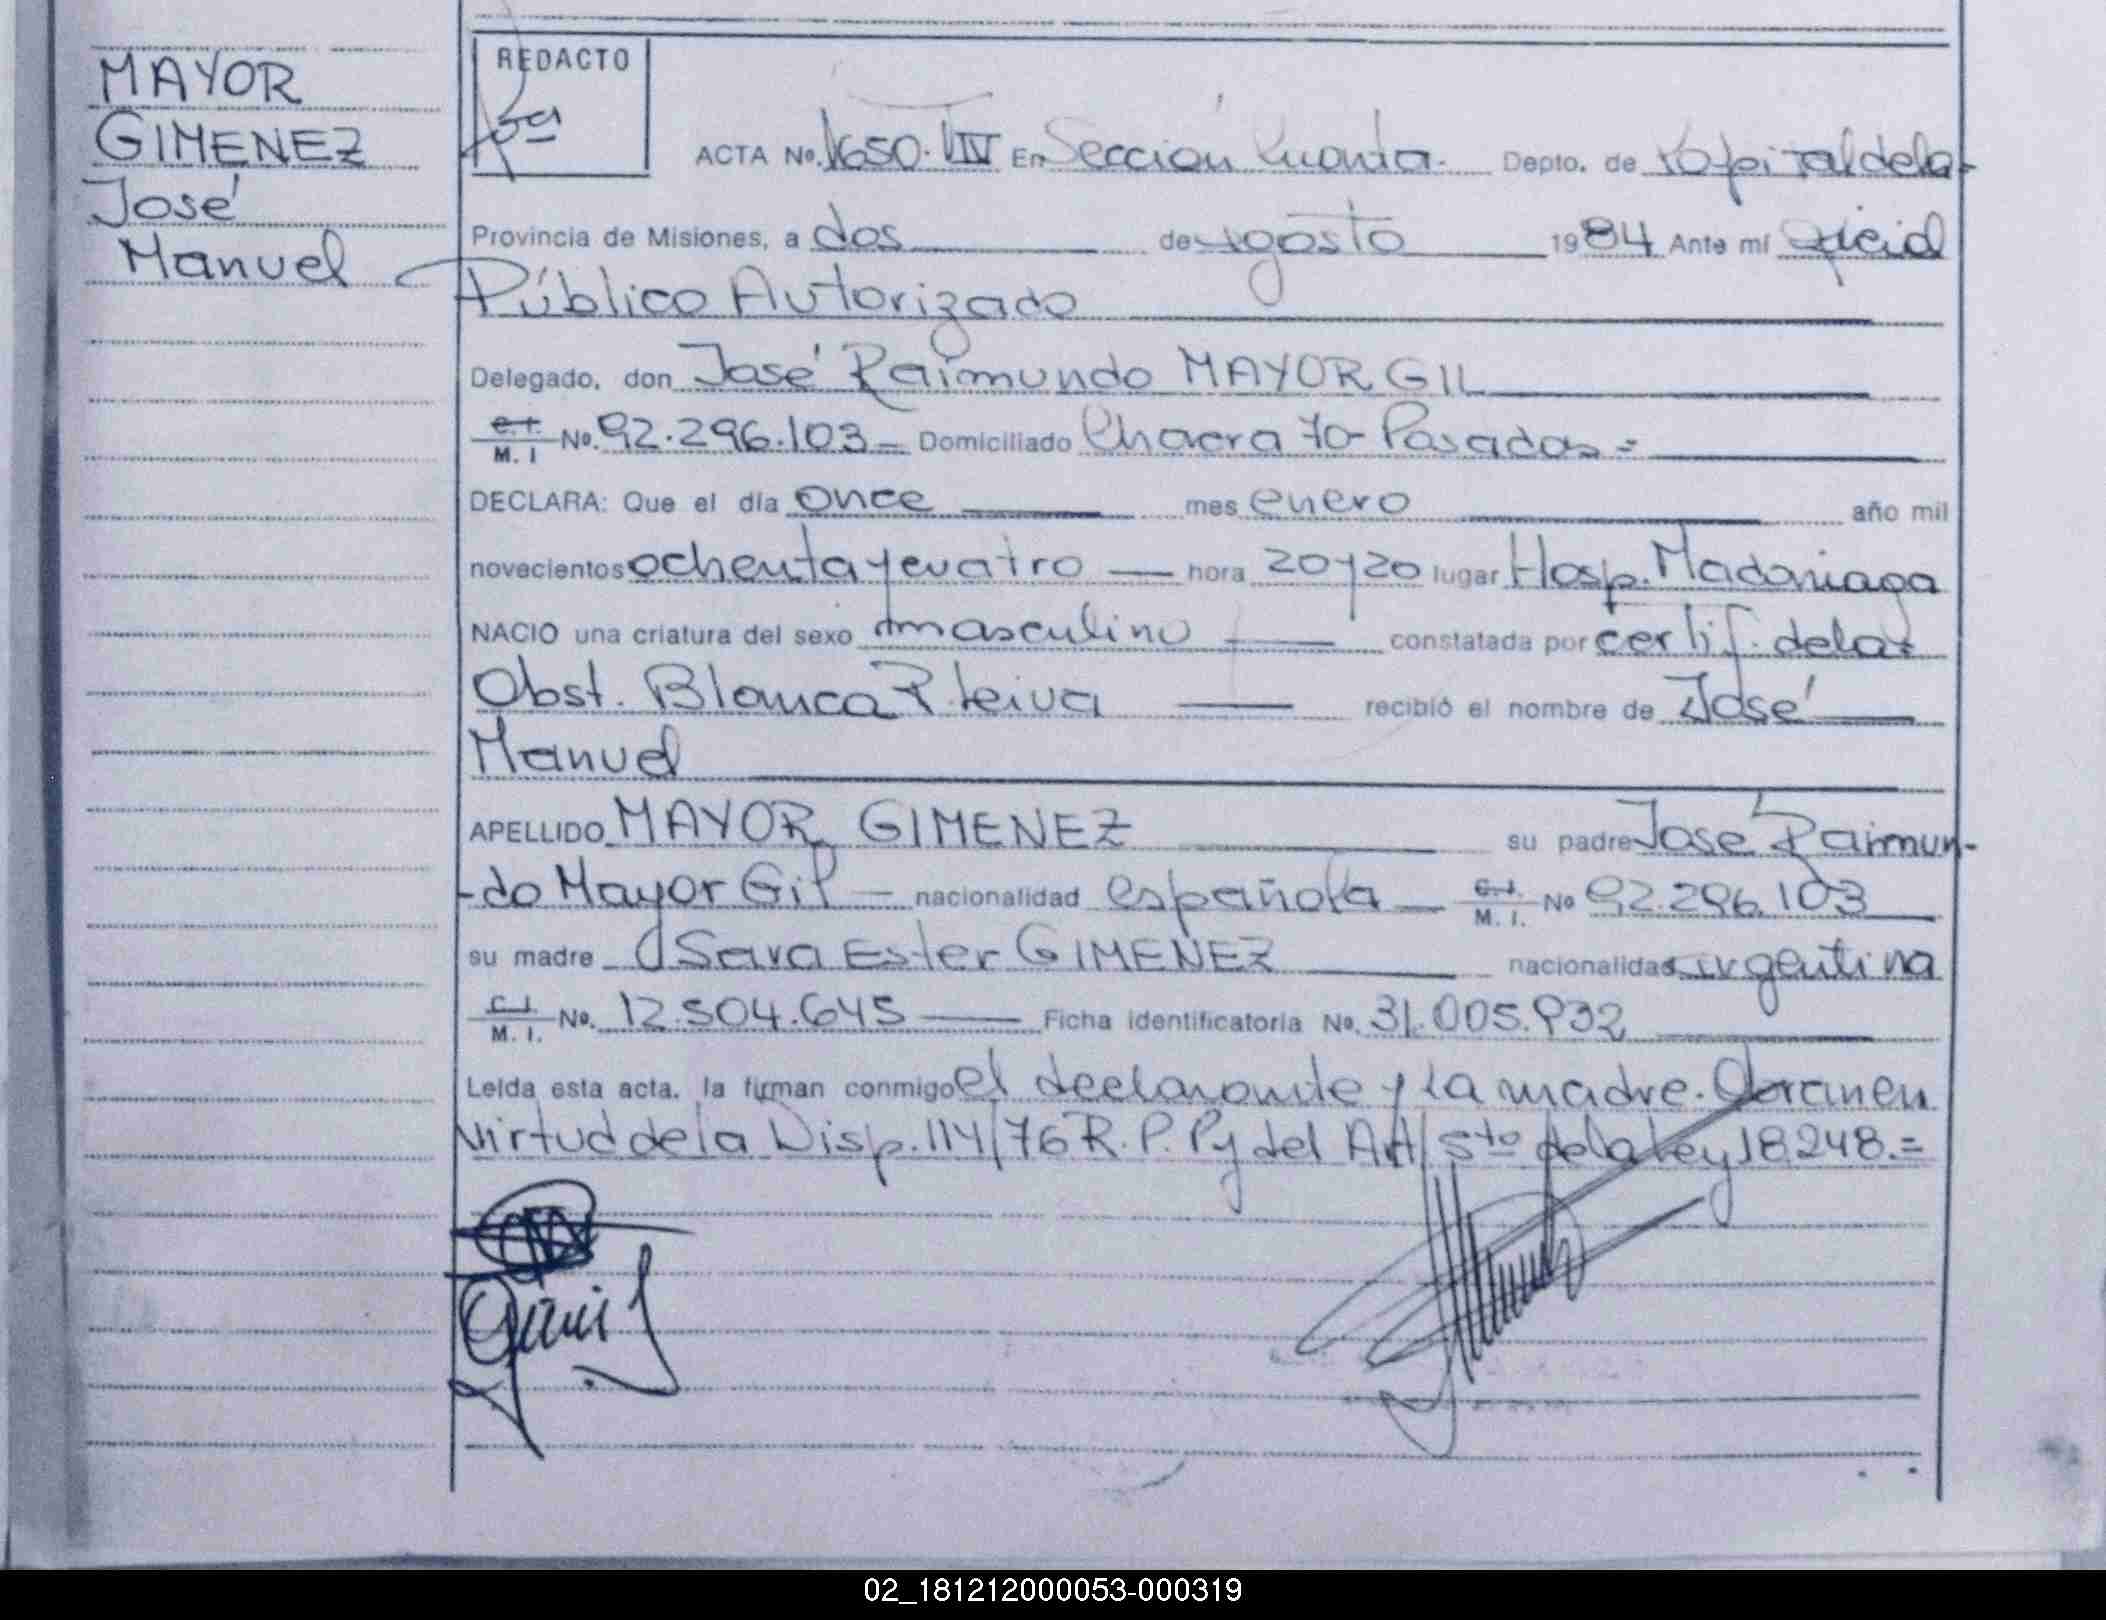 MAYOR
GIMENEZ
José
Manuel
REDACTO
ACTA No. 1650. En Sección Cuarta. Depto. de Capital de la-
Provincia de Misiones, a dos de agosto 1984 Ante mí oficial
Público Autorizado
Delegado, don José Raimundo MAYOR GIL
C.I. M. I No. 92.296.103 = Domiciliado Chacra 70- Posadas =
DECLARA: Que el día once mes enero año mil
novecientos ochenta y cuatro — hora 20 y 20 lugar Hosp. Madariaga
NACIO una criatura del sexo masculino — constatada por certif. de la
Obst. Blanca P. Leiva — recibió el nombre de José
Manuel
APELLIDO MAYOR GIMENEZ su padre José Raimun-
-do Mayor Gil — nacionalidad española — C.I. M. I. No 92.296.103
su madre Sara Ester GIMENEZ nacionalidad argentina
C.I. M. I. No. 12.504.645 — Ficha identificatoria No. 31.005.932
Leída esta acta, la firman conmigo el declarante y la madre. Obran en
virtud de la Disp. 114/76 R. P. P y del Art/ 5to de la Ley 18.248. =
02_181212000053-000319